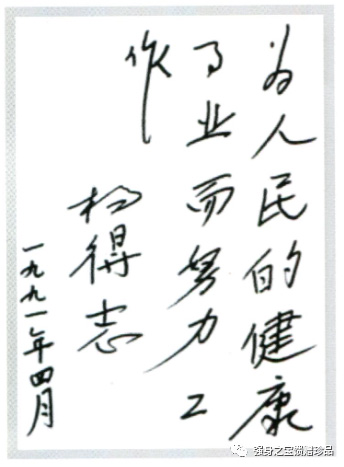 为人民的健康
事业而努力工
作
杨得志
一九九一年四月
强身之宝锁君珍品